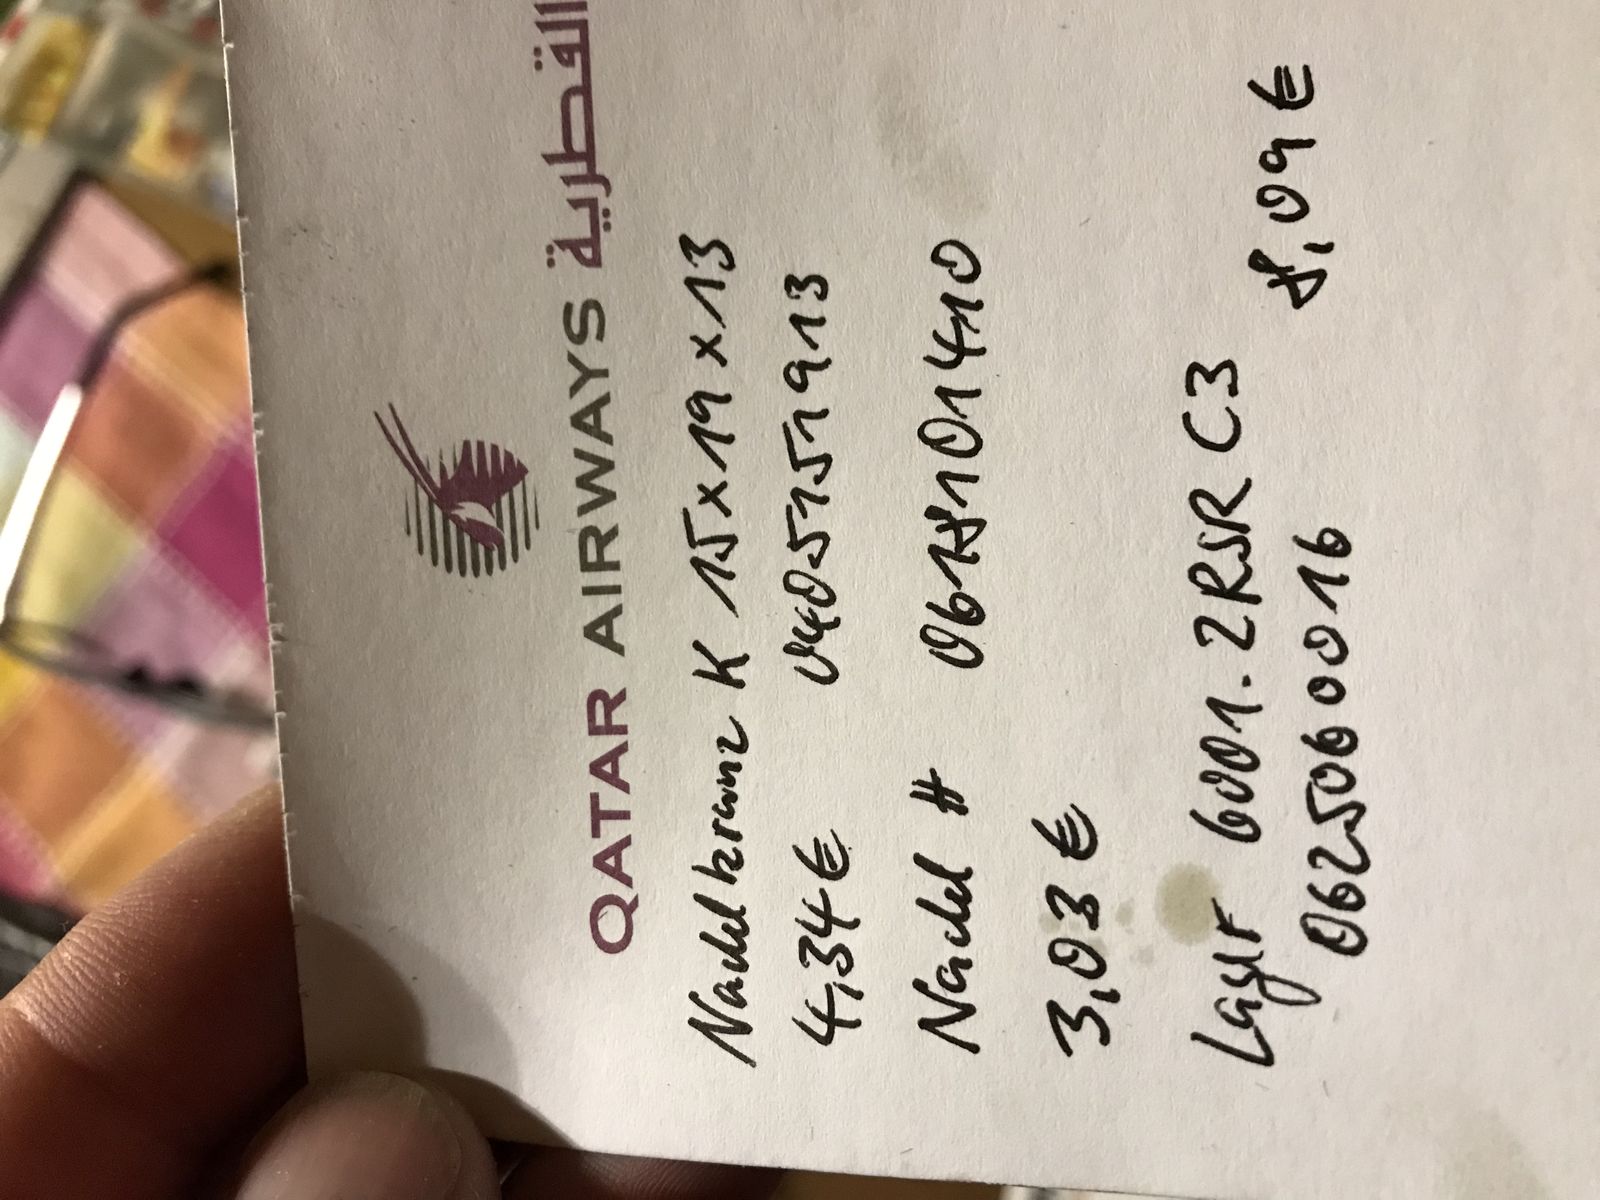 QATAR AIRWAYS القطرية
Nadelkranz K 15x19x13
4,34€ 0405151913
Nadel # 0618101410
3,03€
Lager 6001.2RSR C3
0625060016 8,09€